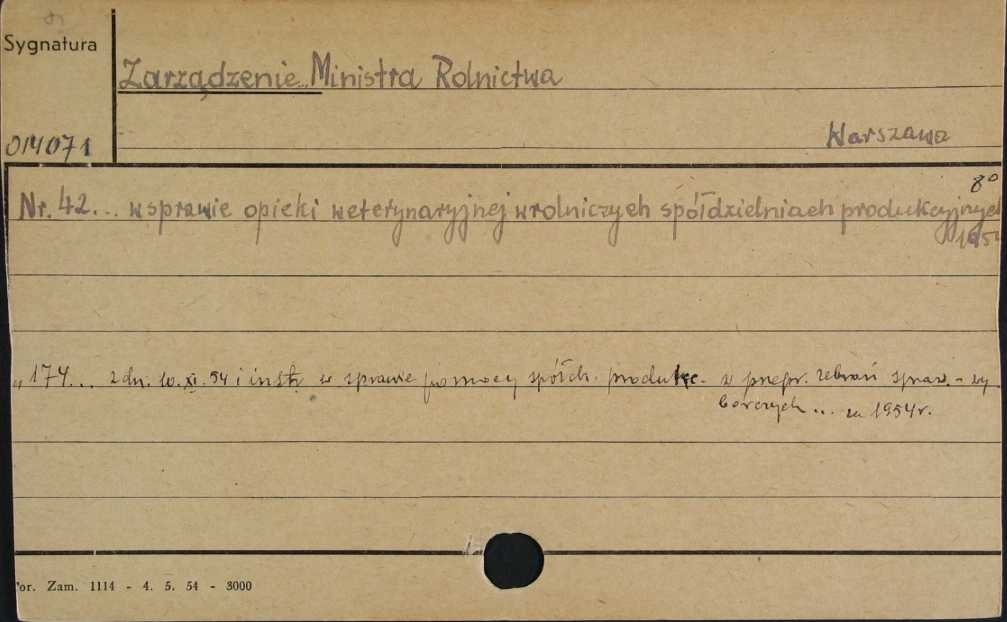 Sygnatura
Zarządzenie.. Ministra Rolnictwa
014071
Warszawa
8°
Nr. 42... w sprawie opieki weterynaryjnej w rolniczych spółdzielniach produkcyjnych
„ 174... z dn. 10.XI.54 i instr. w sprawie pomocy spółdz. produkc. w przepr. zebrań spraw. - wy
borczych ... za 1954 r.
or. Zam. 1114 - 4. 5. 54 - 3000